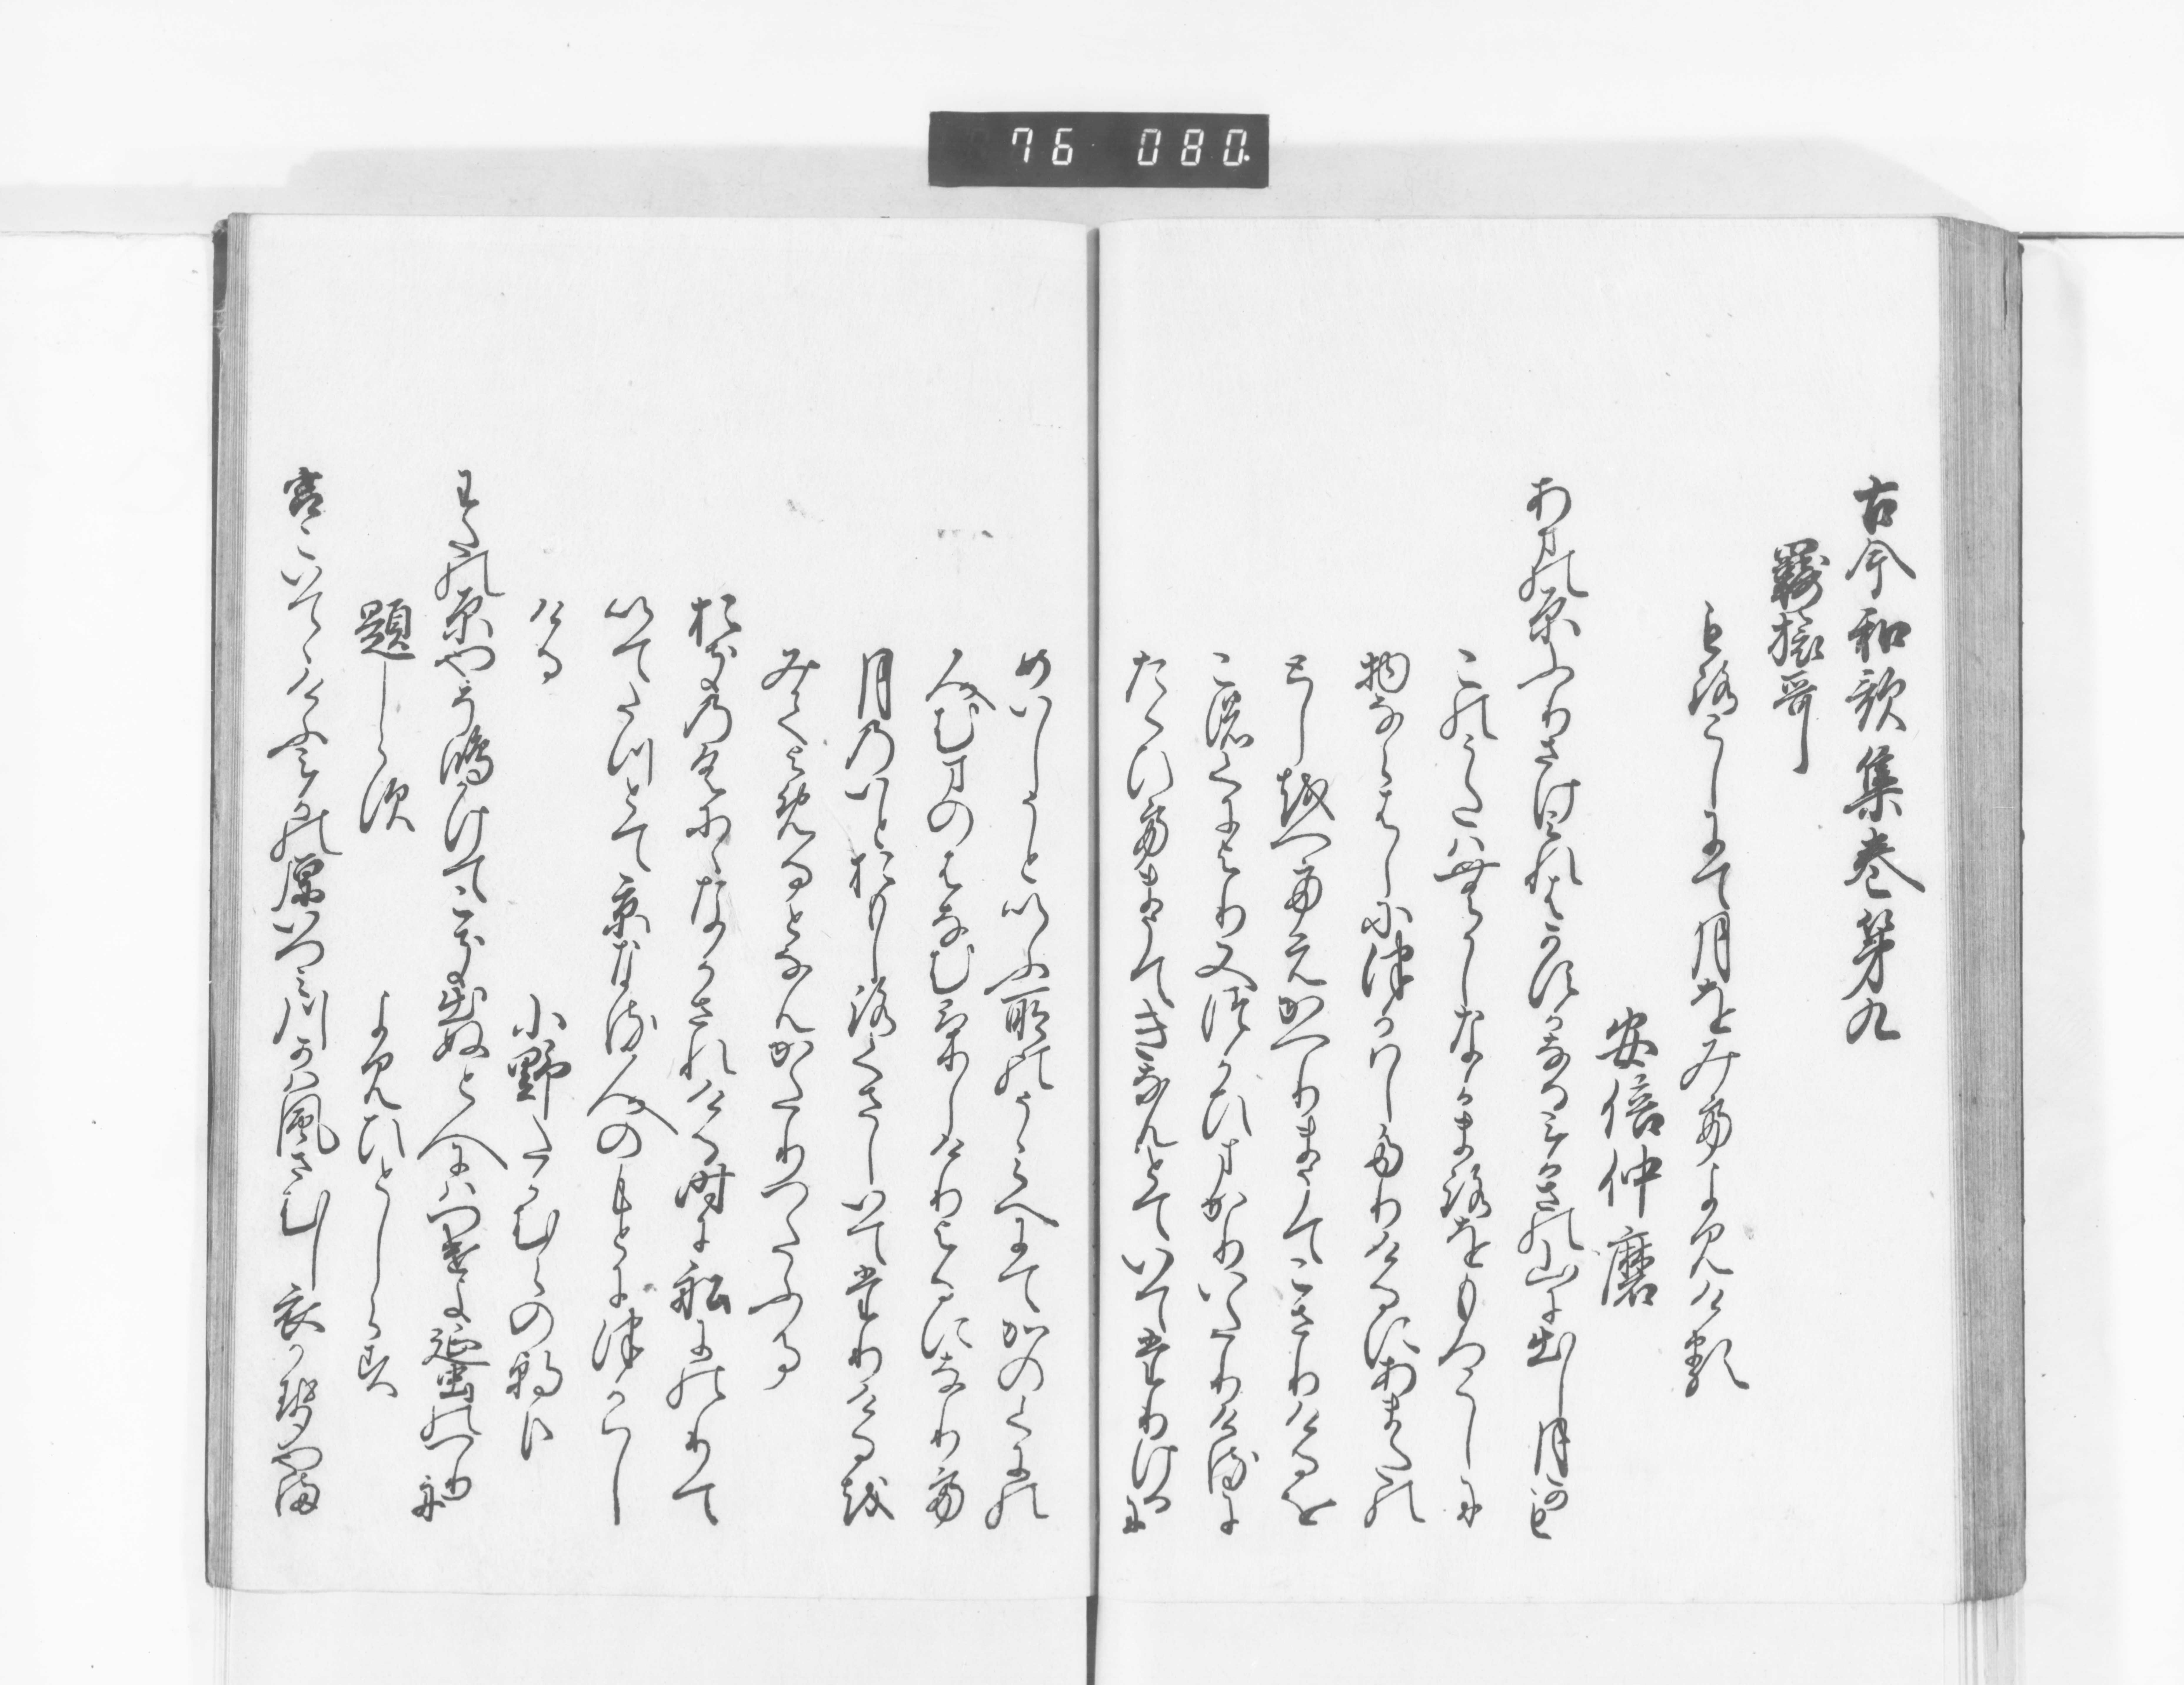 76 080
古今和歌集巻第九
羇旅哥
もろこしにて月をみてよみける
安倍仲麿
あまの原ふりさけみれはかすかなるみかさの山に出し月かも
このうたハむかしなかまろをもろこしに
物ならはしにつかはしたりけるにあまたの
としをへてえかへりまうてこさりけるを
このくにより又つかひまかりいたりけるに
たくひてまうてきなんとていてたりけるに
めいしうといふ所のうみへにてかのくにの
人むまのはなむけしけりよるになりて
月のいとおもしろくさしいてたりけるを
みてよめるとなんかたりつたふる
おきの国になかされける時に船にのりて
いてたつとて京なる人のもとにつかはし
ける
小野たかむらの朝臣
わたの原やそ嶋かけてこき出ぬと人にハつけよあまのつり舟
題しらす
よみひとしらす
宮こいてゝけふみかの原いつみ川かは風さむし衣かせやま